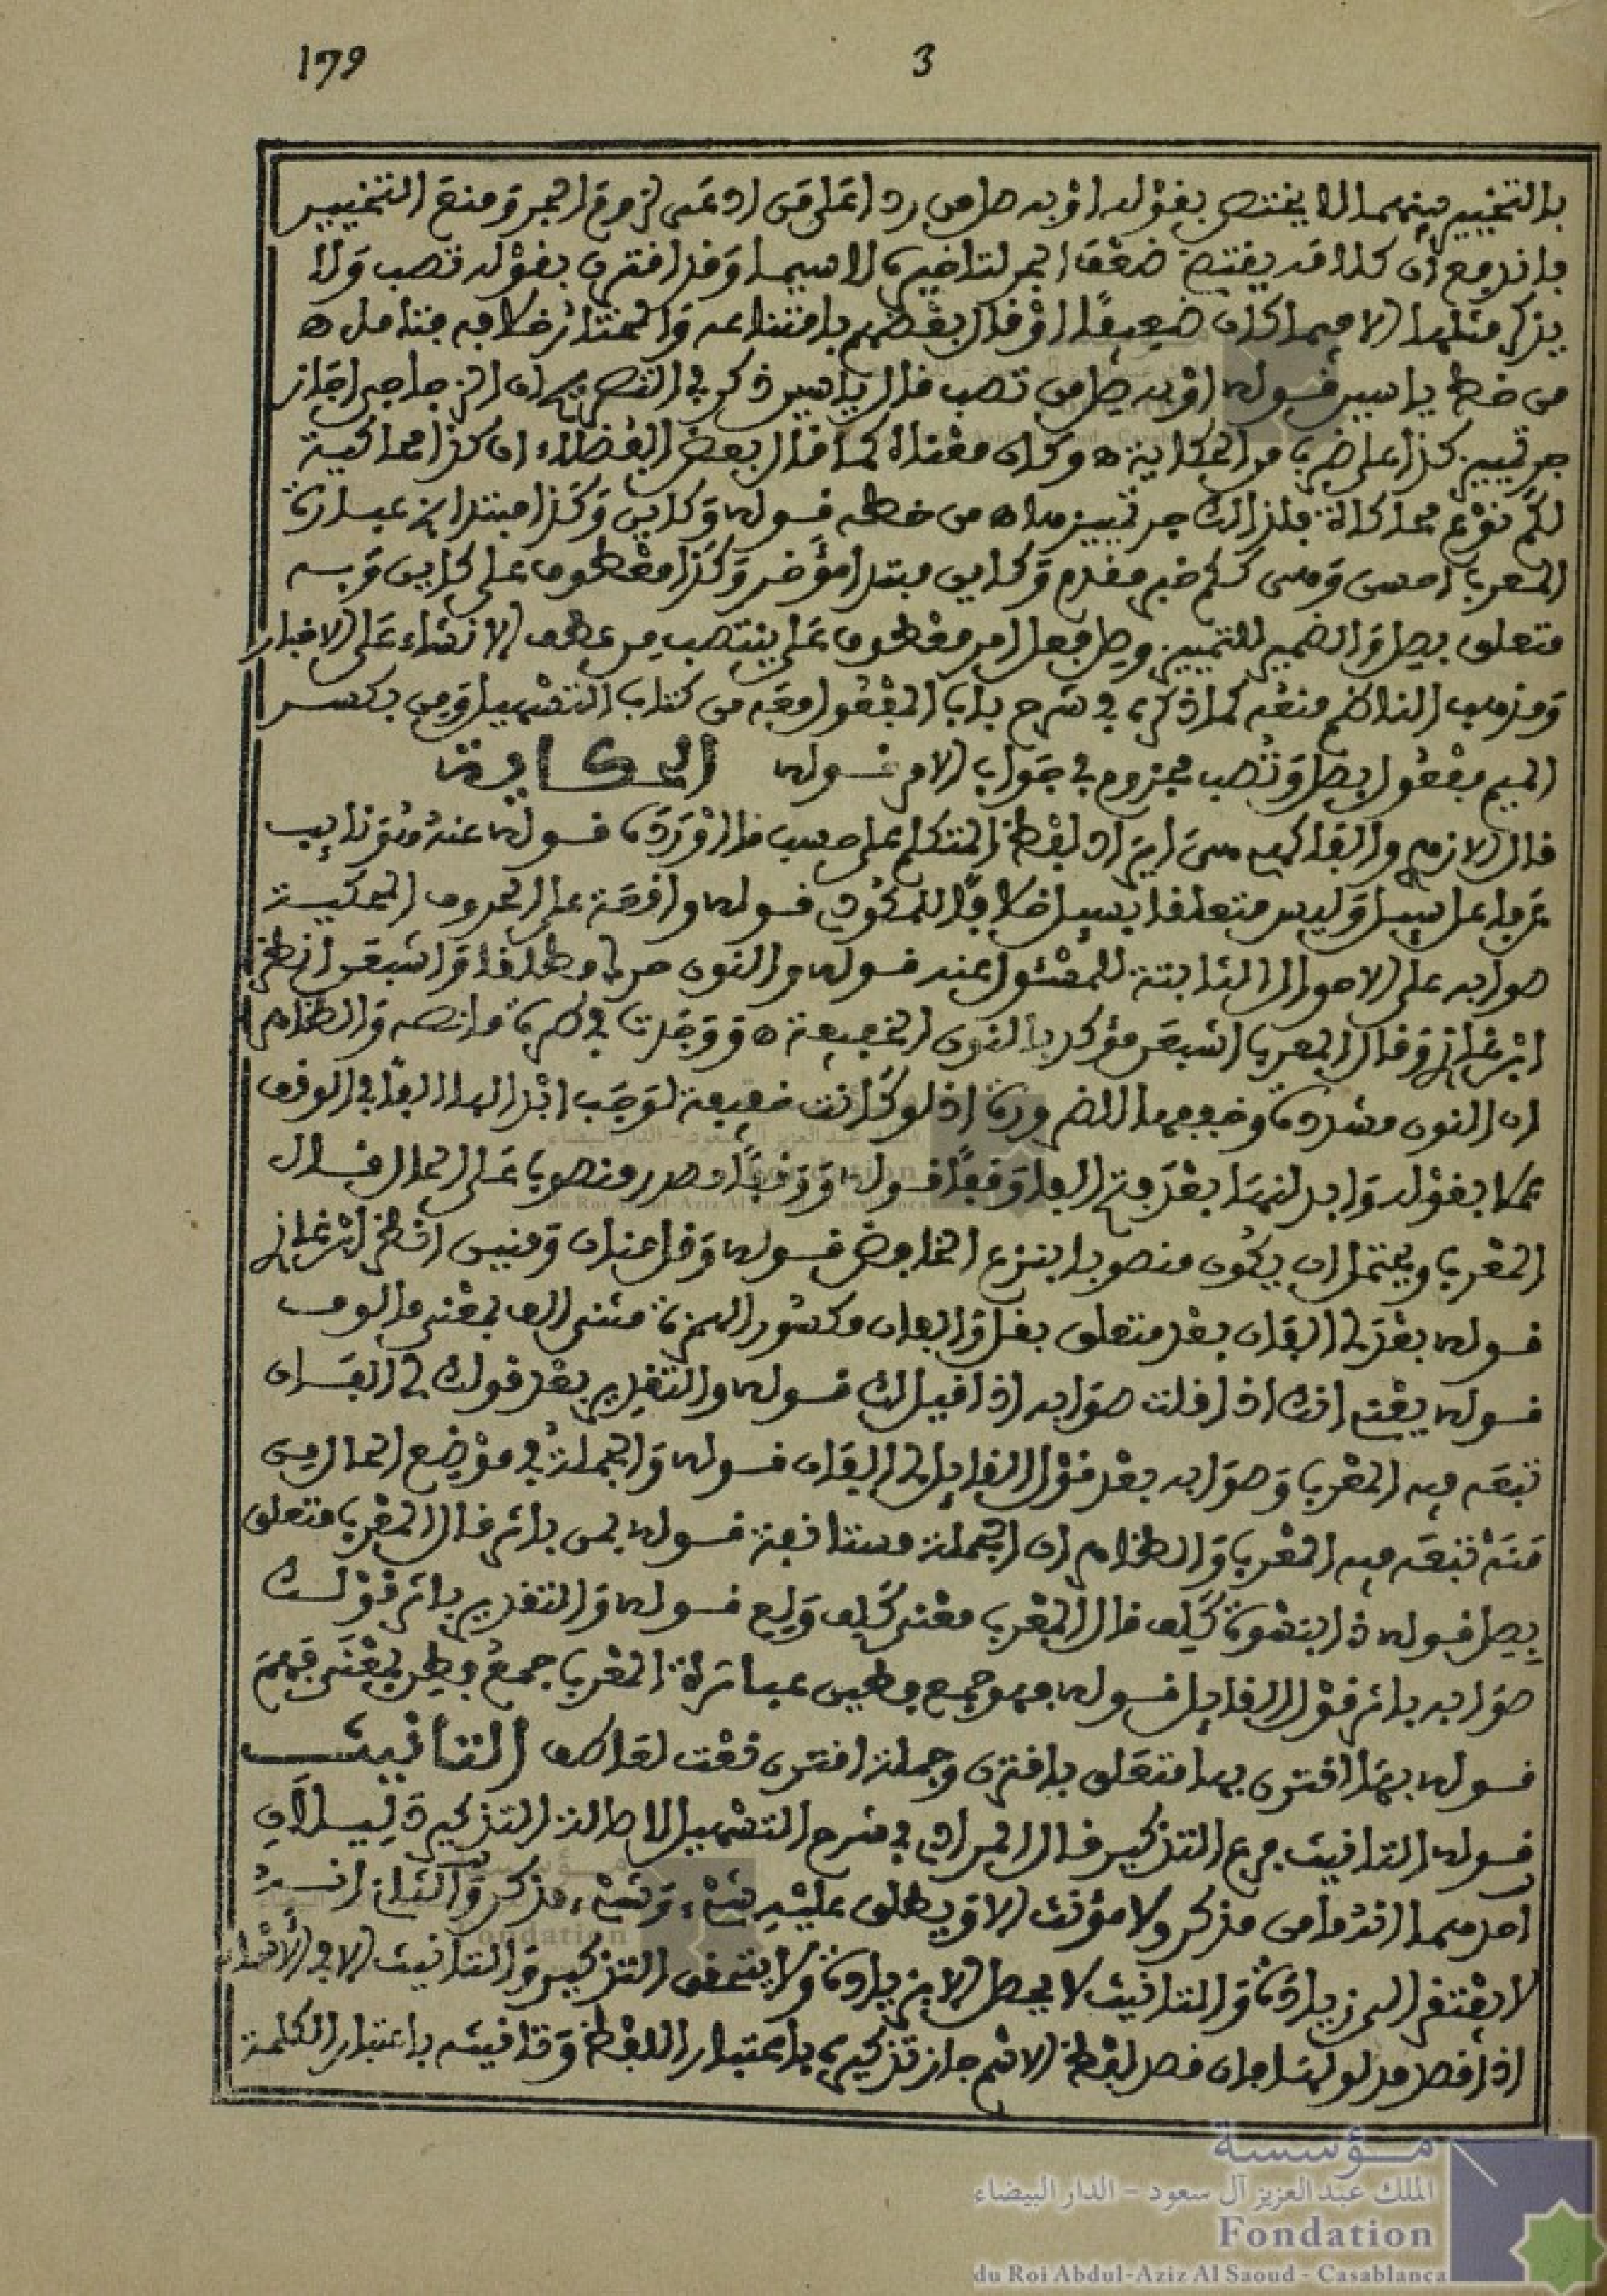 179
3
بالتخيير بينهما لا يختص بقوله أو به صل من ردا على من ادعى لزوم الجر ومنع التخيير
فإنه مع أن كلامه يقتضي ضعف الجر لتأخيره لا سيما وقد اقترن بقوله تصب ولا
يذكر مثلها إلا فيما كان ضعيفا أو قال بعضهم بامتناعه والمختار خلافه فتأمل ه
من خط ياسين قوله أو به صل من تصب قال ياسين ذكر في التصريح ان الزجاجي اجاز
جر تمييز كذا على ضرب من الحكاية ه وكان معناه كما قال بعض الفضلاء ان كذا محاكية
لكم نوع محاكاة فلذالك جر تمييزها ه من خطه قوله وكأين وكذا مبتدا في عبارة
المعرب احسن ومنى ككم خبر مقدم وكأين مبتدا مؤخر وكذا معطوف على كأين وبه
متعلق بصل والضمير للتمييز وصل فعل امر معطوف على ينتصب من عطف الانشاء على الاخبار
ومذهب الناظم منعه كما ذكره في شرح باب المفعول معه من كتاب التسهيل ومن بكسر
الميم مفعول بصل وتصب مجزوم في جواب الامر قوله الحكاية
قال الازهري والفاكهي هي ايراد لفظ المتكلم على حسب ما اورده قوله عنه هو نائب
عن فاعل سيل وليس متعلقا بسيل خلافا للمكودي قوله واقعة على الحروف المحكية
صوابه على الاحوال الثابتة للمسئول عنه قوله والنون حرك مطلقا واشبعن انظر
ابن غازي وقال المعرب اشبعن مؤكد بالنون الخفيفة ه ووجدت في طرة ما نصه والظاهر
ان النون مشددة وخففها للضرورة اذ لو كانت خفيفة لوجب ابدالها الفا في الوقف
عملا بقوله وابدلنها بعد فتح الفا وقفا قوله ووقفا مصدر منصوب على الحال قال
المعرب ويحتمل ان يكون منصوبا بنزع الخافض قوله وقل منان ومنين انظر ابن غازي
قوله بعد لي الفان بعد متعلق بقل والفان مكسور الهمزة مثنى الف بمعنى مالوف
قوله يعني انك اذا قلت صوابه اذا قيل لك قوله والتقدير بعد قولك لي الفان
تبعه فيه المعرب وصوابه بعد قول القايل لي الفان قوله والجملة في موضع الحال من
منه تبعه فيه المعرب والظاهر ان الجملة مستانفة قوله لمن باثر قال المعرب متعلق
بصل قوله ذا بنسوة كلف قال المعرب معنى كلف ولع قوله والتقدير باثر قولك
صوابه باثر قول القايل قوله وهو جمع فطين عبارة المعرب جمع فطن بمعنى فهم
قوله بها اقترن بها متعلق باقترن وجملة اقترن نعت لعاطف التأنيث
قوله التانيث فرع التذكير قال المرادي في شرح التسهيل الاصالة التذكير دليلان
احدهما انه ما من مذكر ولا مؤنث الا ويطلق عليه شيء وشيء مذكر والثاني انه
لا يفتقر الى زيادة والتانيث لا يحصل الا بزيادة ولا يتحقق التذكير والتانيث الا في الاسماء
اذا قصد مدلولها فان قصد لفظ الاسم جاز تذكيره باعتبار اللفظ وتانيثه باعتبار الكلمة
مؤسسة
الملك عبد العزيز آل سعود - الدار البيضاء
Fondation
du Roi Abdul-Aziz Al Saoud - Casablanca